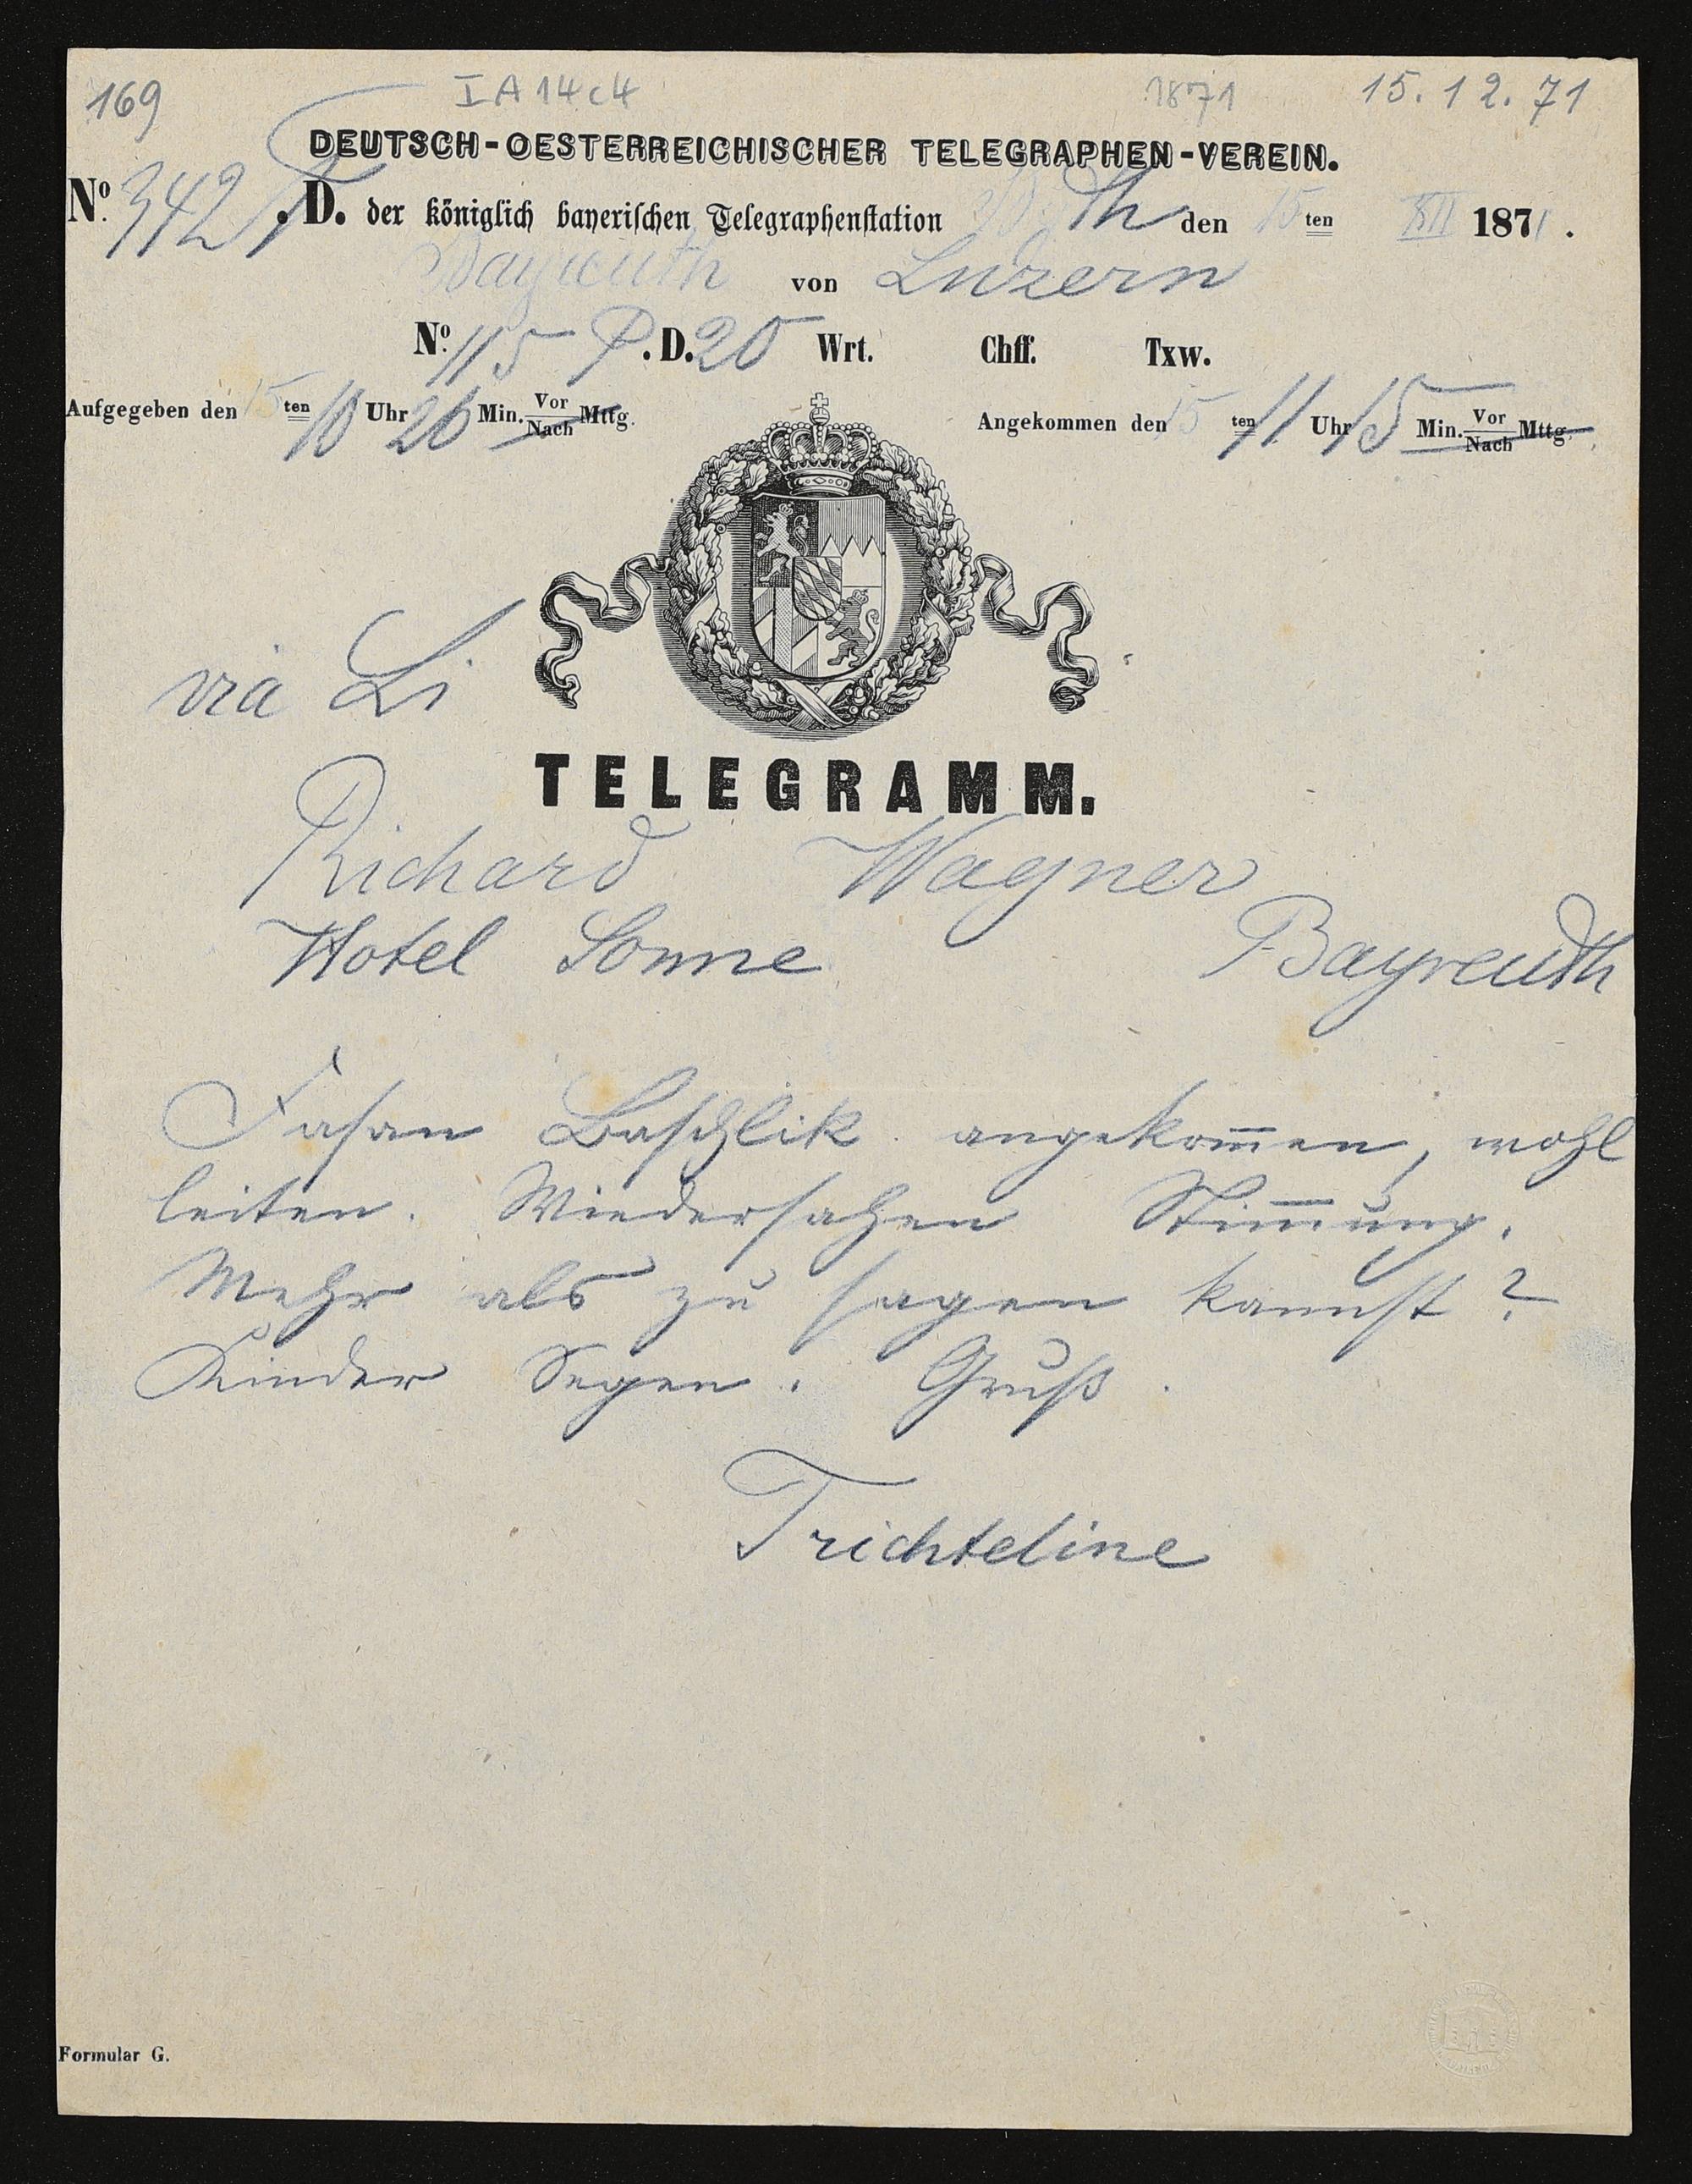 169 I A 14 c 4 1871 15.12.71
DEUTSCH-OESTERREICHISCHER TELEGRAPHEN-VEREIN.
No. 342 .D. der königlich bayerischen Telegraphenstation Bth den 15 ten XII 1871.
Bayreuth von Luzern
No. 115 P. D. 20 Wrt. Chff. Txw.
Aufgegeben den 15 ten 10 Uhr 26 Min. Vor Nach Mttg. Angekommen den 15 ten 11 Uhr 15 Min. Vor Nach Mttg.
via Li
TELEGRAMM.
Richard Wagner
Hotel Sonne Bayreuth
Fasan Baschlik angekom̅en, wohl
leiten. Wiedersahen Stim̅ung.
Mehr als zu sagen kannst?
Kinder Segen. Gruß.
Trichteline
Formular G.